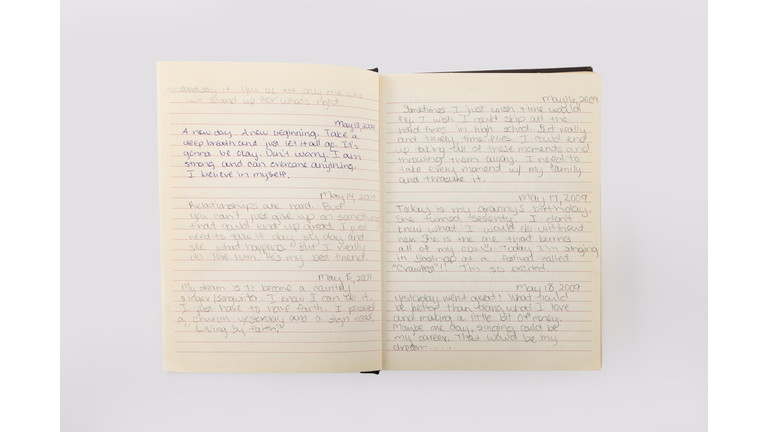 and say it. You be the only one who
will stand up for what's right
May 13, 2009
A new day. A new beginning. Take a
deep breath and just let it all go. It's
gonna be okay. Don't worry. I am
strong and can overcome anything.
I believe in myself.
May 14, 2009
Relationships are hard. But
you can't just give up on something
that could end up great. I just
need to take it day by day and
see what happens. But I really
do love him. He's my best friend.
May 15, 2009
My dream is to become a country
singer/songwriter. I know I can do it.
I just have to have faith. I passed
a church yesterday and a sign read
"Living by faith."
May 16, 2009
Sometimes I just wish time would
fly. I wish I could skip all the
hard times in high school. But really
and truely, time flies. I could end
up taking all of these moments and
throwing them away. I need to
take every moment w/ my family
and treasure it.
May 17, 2009
Today is my granny's birthday.
She turned seventy. I don't
know what I would do without
her. She is the one that burns
all of my CD's. Today I'm singing
in at a festival called
"Crawfest"!! I'm so excited.
May 18, 2009
Yesterday went great! What could
be better than doing what I love
and making a little bit of money.
Maybe one day, singing could be
my career. That would be my
dream......